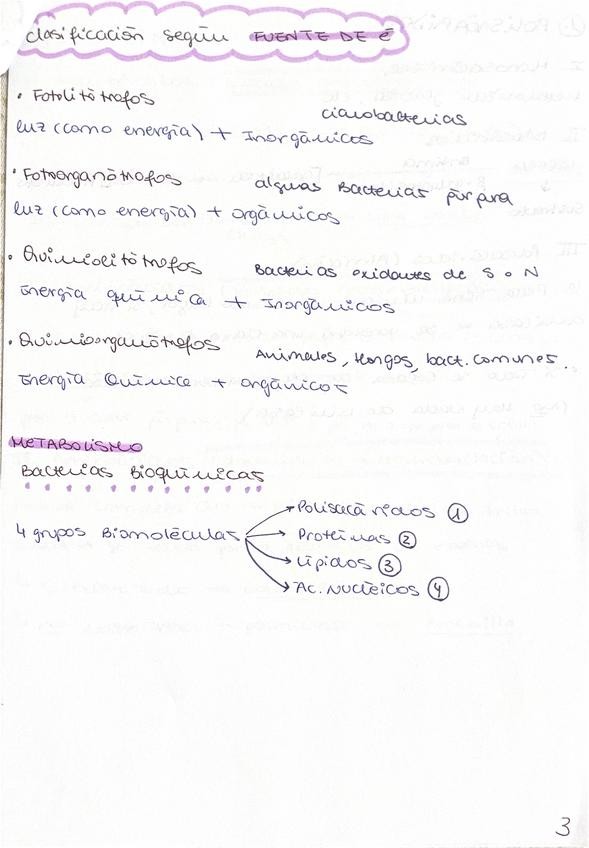 clasificación según FUENTE DE é
• Fotolitótrofos
cianobacterias
luz (como energía) + Inorgánicos
• Fotoorganótrofos
algunas Bacterias púrpura
luz (como energía) + orgánicos
• Quimiolitótrofos
Bacterias oxidantes de S o N
Energía química + Inorgánicos
• Quimioorganótrofos
Animales, Hongos, bact. comunes.
Energía Química + orgánicos
METABOLISMO
Bacterias Bioquímicas
4 grupos Biomoléculas
→ Polisacáridos ①
→ Proteínas ②
→ Lípidos ③
→ Ac. Nucleicos ④
3